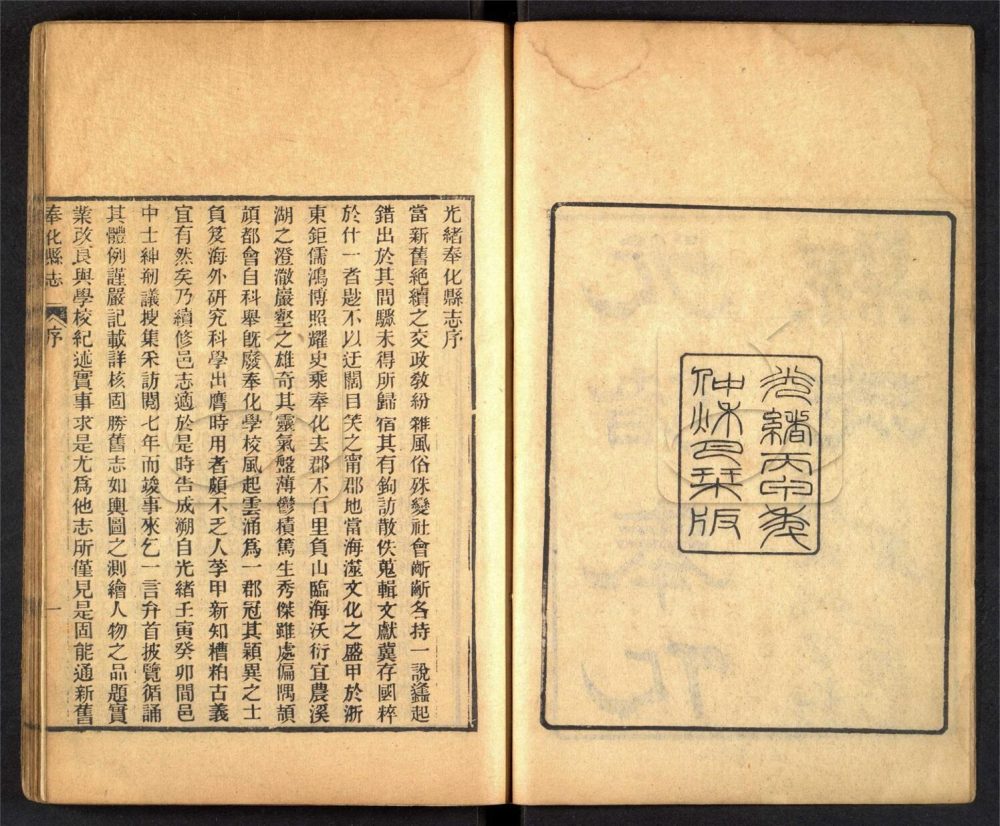 光緒丙申秊
仲秌月栞版
光緒奉化縣志序
當新舊絕續之交政敎紛雜風俗殊變社會齗齗各持一說蠭起
錯出於其間驟未得所歸宿其有鉤訪散佚蒐輯文獻冀存國粹
於什一者尠不以迂闊目笑之甯郡地當海澨文化之盛甲於浙
東鉅儒鴻博照耀史乘奉化去郡不百里負山臨海沃衍宜農溪
湖之澄澈巖壑之雄奇其靈氣盤薄鬱積篤生秀傑雖處偏隅頡
頏都會自科舉旣廢奉化學校風起雲涌爲一郡冠其穎異之士
負笈海外研究科學出膺時用者頗不乏人荂甲新知糟粕古義
宜有然矣乃續修邑志適於是時告成溯自光緒壬寅癸卯間邑
中士紳剏議搜集采訪閱七年而竣事來乞一言弁首披覽循誦
其體例謹嚴記載詳核固勝舊志如輿圖之測繪人物之品題實
業改良與學校紀述實事求是尤爲他志所僅見是固能通新舊
奉化縣志 序 一